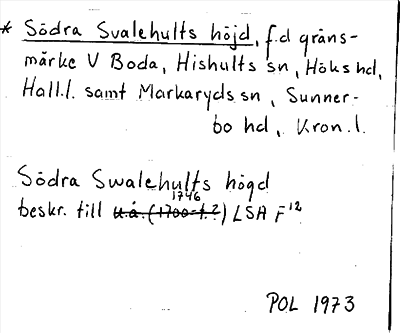 * Södra Svalehults höjd, f.d gräns-
märke V Boda, Hishults sn, Höks hd,
Hall.l. samt Markaryds sn, Sunner-
bo hd, Kron.l.
Södra Swalehults högd
1746
beskr. till u.å. (1700-t.?) LSA F12
POL 1973